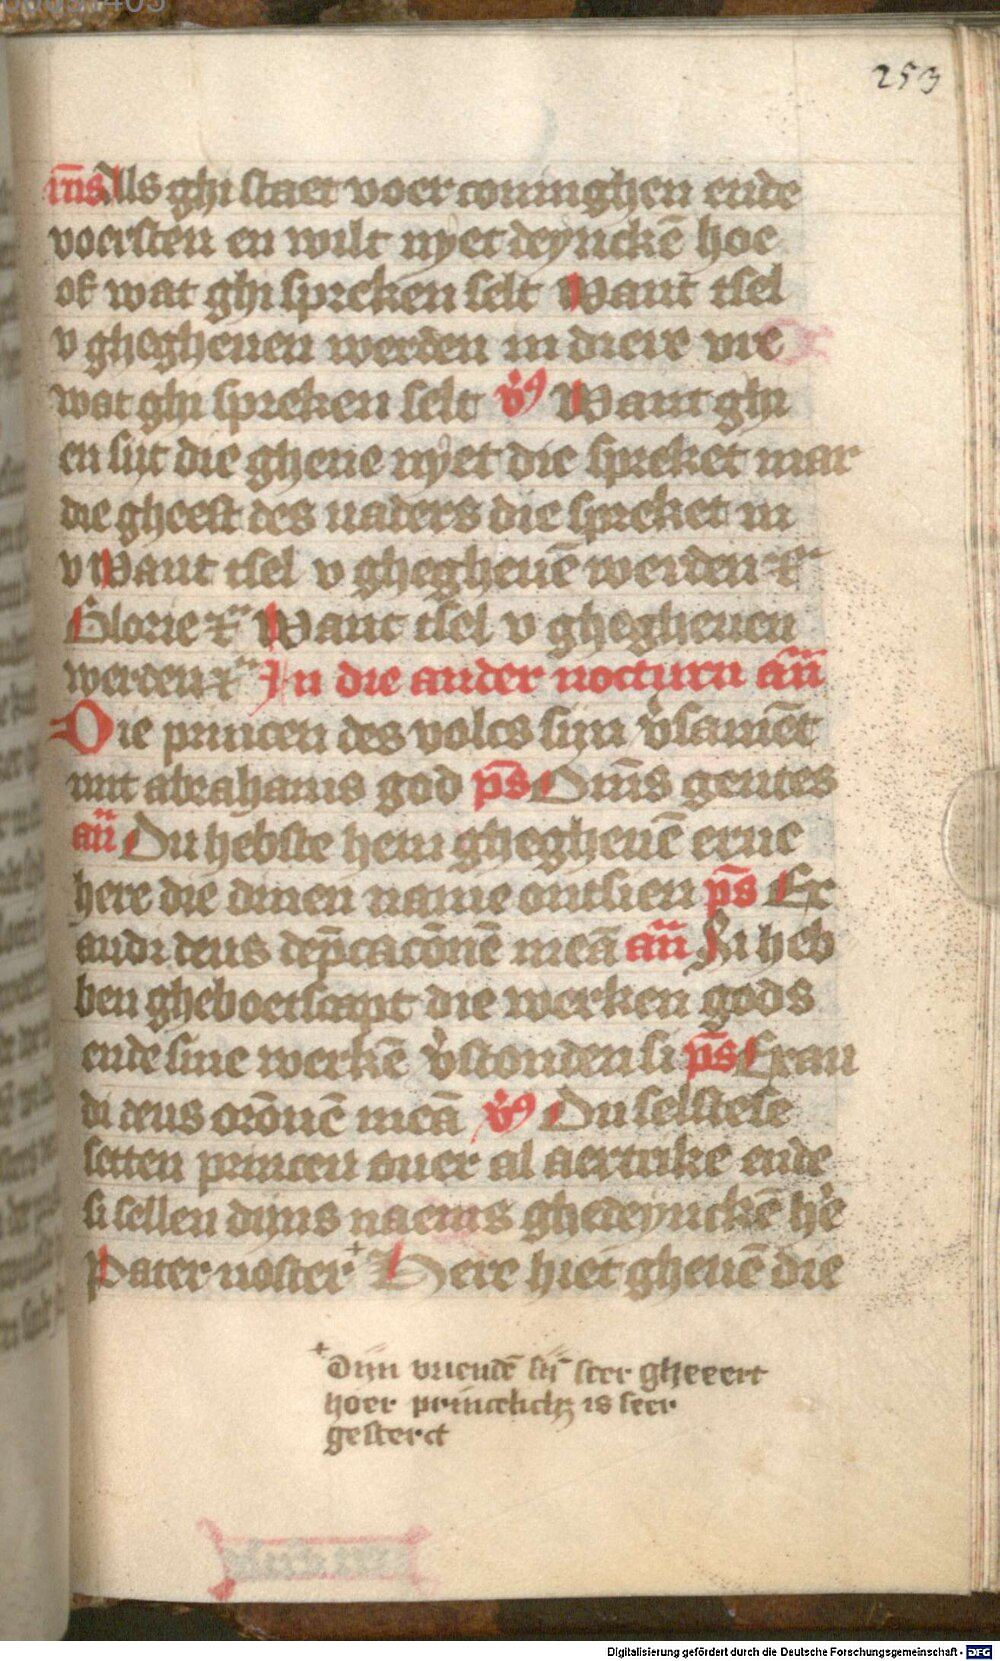 253
ım̄s Als ghi staet voer coninghen ende
voersten en wilt nyet deyncke̅ hoe
of wat ghi spreken selt Want tsel
v ghegheuen werden in diere vre
wat ghi spreken selt v̓s Want ghi
en sijt die ghene nyet die spreket mar
die gheest des uaders die spreket in
v Want tsel v ghegheue̅ werden &c
Glorie &c Want tsel v ghegheuen
werden &c In die ander nocturn an̅
Die princen des volcs sijn v̓same̅t
mit abrahams god ps̅ Om̅s gentes
an̅ Du hebste hem ghegheue̅ erue
here die dinen name ontsien ps̅ Ex
audi deus dep̅caco̅ne̅ mea̅ an̅ Si heb
ben gheboetscapt die werken gods
ende sine werke̅ v̓stonden si ps̅ Exau
di deus oro̅ne̅ mea̅ v̓s Du selstese
setten princen ouer al aertrike ende
si sellen dijns naems ghedeyncke̅ he̓
Pater noster + Here hiet gheue̅ die
+ Dijn vriende̅ sij̅ seer gheeert
hoer princelich is seer
gesterct
Digitalisierung gefördert durch die Deutsche Forschungsgemeinschaft - DFG